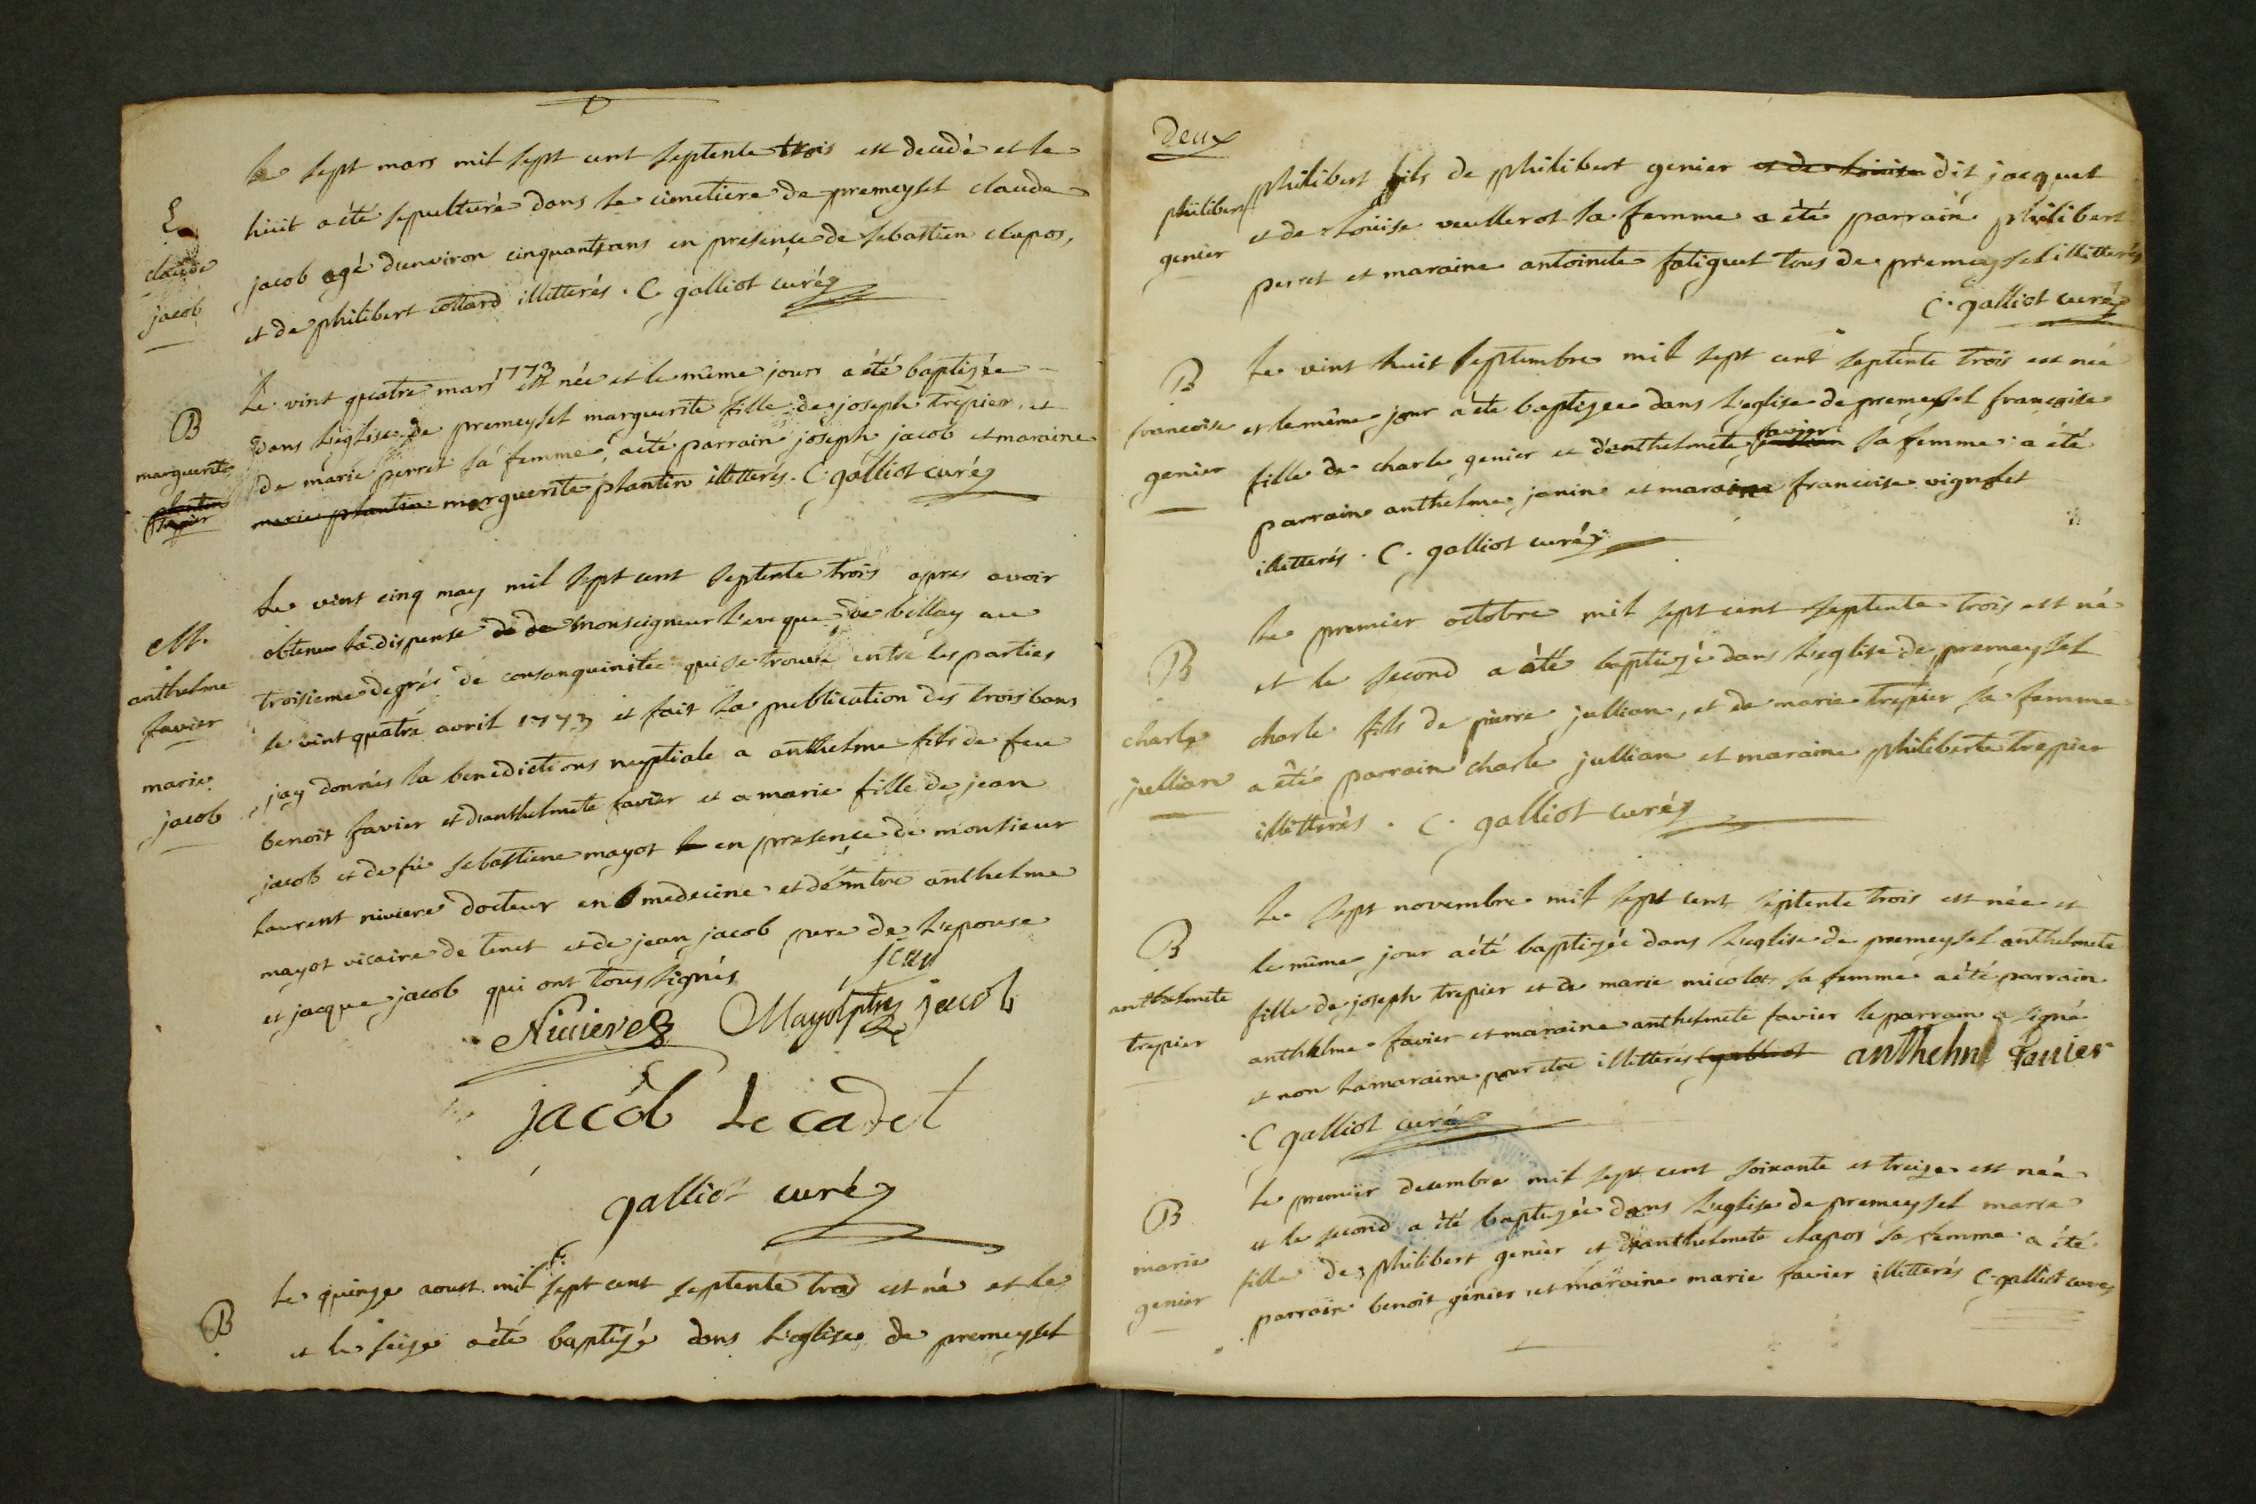 Le sept mars mil sept cent septente trois est decedè et le
huit a été sepulturé dans le cimetiere de premeysel claude
jacob agé denviron cinquante ans en presence de sebastien clapos,
et de philibert cottard illitterés. C. galliot curé
claude
jacob
B
marguerite
plantin
trepier
Le vint quatre mars 1773 est née et le même jours a été baptisée
dans l'eglise de premeysel marguerite fille de joseph trepier, et
de marie perret sa femme, a été parrain joseph jacob et maraine
marie plantin marguerite plantin illitterés. C. galliot curé
M.
anthelme
favier
marie
jacob
Le vint cinq may mil sept cent septente trois apres avoir
obtenu la dispense de de monseigneur l'eveque de bellay au
troisieme degrés de consanguinitée qui se trouve entre les parties
le vint quatre avril 1773 et fait la publication des trois bans
jay donnés la benedictions nuptiale a anthelme fils de feu
benoit favier et danthelmete favier et a marie fille de jean
jacob et de fü sebastiene mayot en presence de monsieur
laurent niviere docteur en medecine et de mtre anthelme
mayot vicaire de tenet et de jean jacob pere de l'epouse
et jacque jacob qui ont tous signés
Niviere Mayot ptre jean jacob
jacob Le cadet
galliot curé
B
Le quinze aoust mil sept cent septente trois est né et le
et le seize a été baptisé dans l'eglise de premeysel
Deux
philibert
genier
philibert fils de philibert genier et de louise dit jacquet
et de Louise veullerot sa femme a été parrain philibert
perret et maraine antoinete fatiguet tous de premeysel illitterés
C. galliot curé
B
francoise
genier
Le vint huit septembre mil sept cent septente trois est née
et le même jour a été baptizee dans l'eglise de premeysel francoise
fille de charle genier et d'anthelmete favier sa femme a été
parrain anthelme janin et maraine francoise vignolet
illitterés. C. galliot curé
B
charle
jullian
Le premier octobre mil sept cent septente trois est né
et le second a été baptizé dans l'eglise de premeysel
charle fils de pierre jullian, et de marie trepier sa femme
a été parrain charle jullian et maraine philiberte trepier
illitterés. C. galliot curé
B
anthelmete
trepier
Le sept novembre mil sept cent septente trois est née et
le même jour a été baptizée dans l'eglise de premeysel anthelmete
fille de joseph trepier et de marie micolot sa femme a été parrain
anthelme favier et maraine anthelmete favier le parrain a signé
et non la maraine pour etre illitterés C galliot anthelme favier
C galliot curé
B
marie
genier
Le premier decembre mil sept cent soixante et treize est née
et le second a été baptizée dans l'eglise de premeysel marie
fille de philibert genier et d'anthelmete clapos sa femme a été
parrain benoit génier et maraine marie favier illitterés C. galliot curé